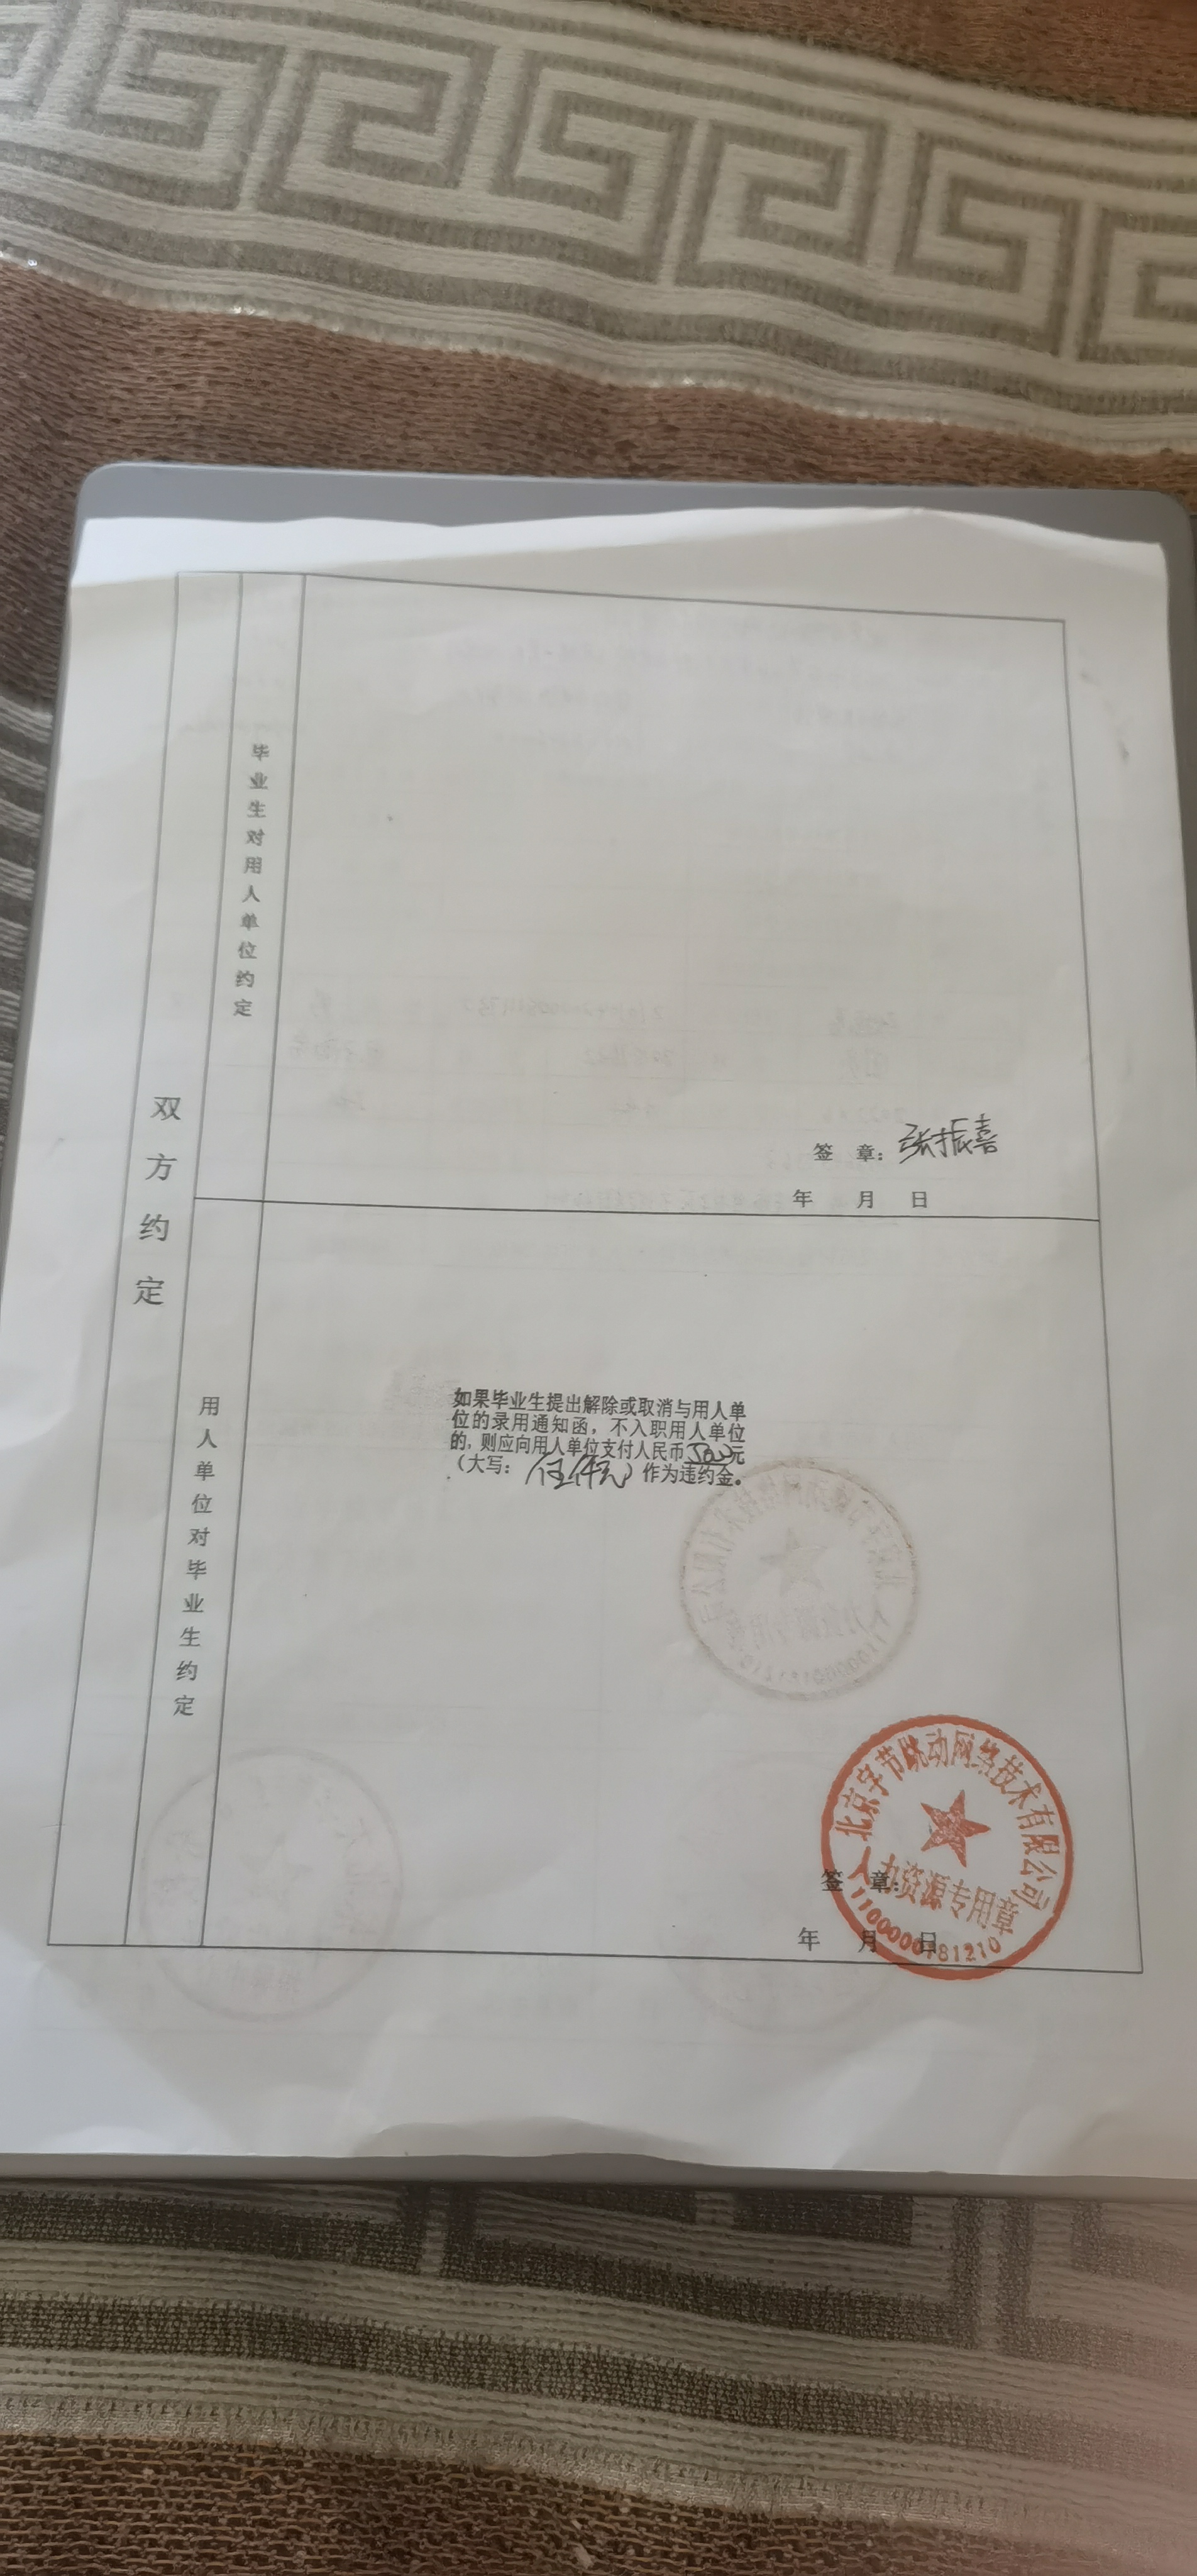 双方约定
毕业生对用人单位约定
签 章：张振喜
年 月 日
用人单位对毕业生约定
如果毕业生提出解除或取消与用人单
位的录用通知函，不入职用人单位
的，则应向用人单位支付人民币5000元
（大写：伍仟元）作为违约金。
北京字节跳动网络技术有限公司
人力资源专用章
1100000181210
签 章：
年 月 日